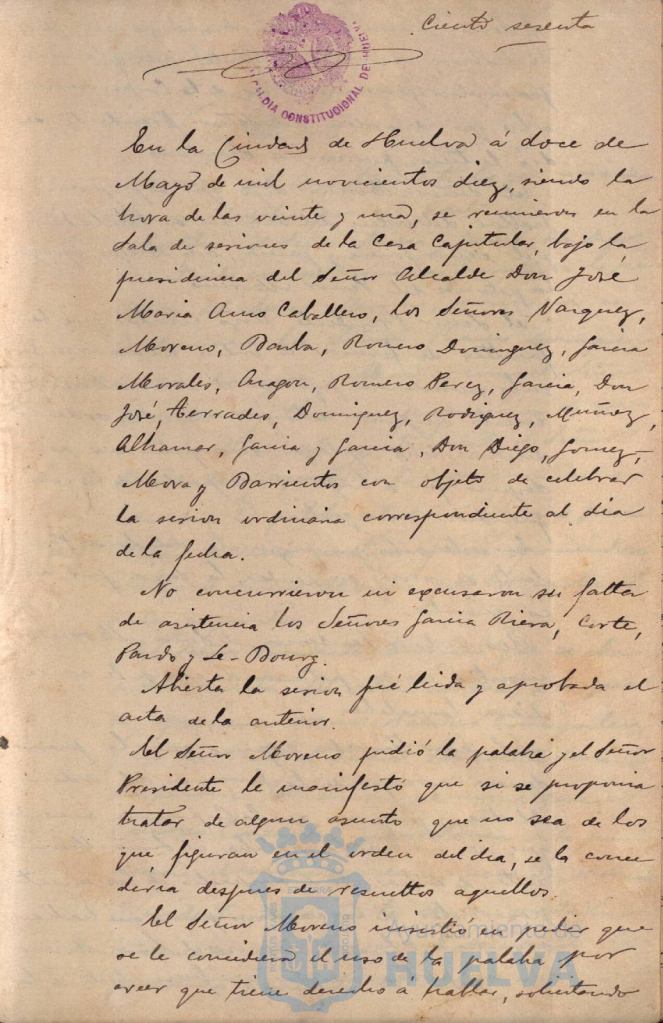 Ciento sesenta
ALCALDIA CONSTITUCIONAL DE HUELVA
En la Ciudad de Huelva á doce de
Mayo de mil novecientos diez, siendo la
hora de las veinte y una, se reunieron en la
Sala de sesiones de la Casa Capitular, bajo la
presidencia del Señor Alcalde Don José
Maria Amo Caballero, los Señores Vazquez,
Moreno, Barba, Romero Dominguez, Garcia
Morales, Aragon, Romero Perez, Garcia, Don
José, Terrades, Dominguez, Rodriguez, Muñoz,
Alhamar, Garcia y Garcia, Don Diego, Gomez,
Mora y Barrientos con objeto de celebrar
la sesion ordinaria correspondiente al dia
de la fecha.
No concurrieron ni excusaron su falta
de asistencia los Señores Garcia Riera, Corte,
Pardo y Le-Bourg.
Abierta la sesion fué leida y aprobada el
acta de la anterior.
El Señor Moreno pidió la palabra y el Señor
Presidente le manifestó que si se proponia
tratar de algun asunto que no sea de los
que figuran en el orden del dia, se la conce
deria despues de resueltos aquellos.
El Señor Moreno insistió en pedir que
se le concediera el uso de la palabra por
creer que tiene derecho á hablar, solicitando
Ayuntamiento de
HUELVA